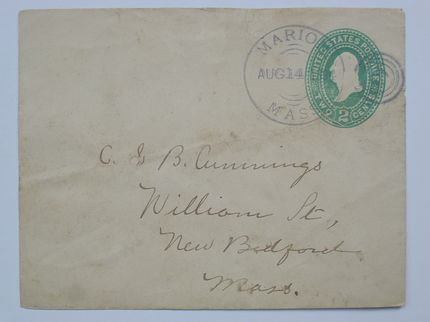 MARIO
AUG 14
MASS
UNITED STATES POSTAGE
TWO 2 CENTS
C. & B. Cummings
William St.,
New Bedford
Mass.